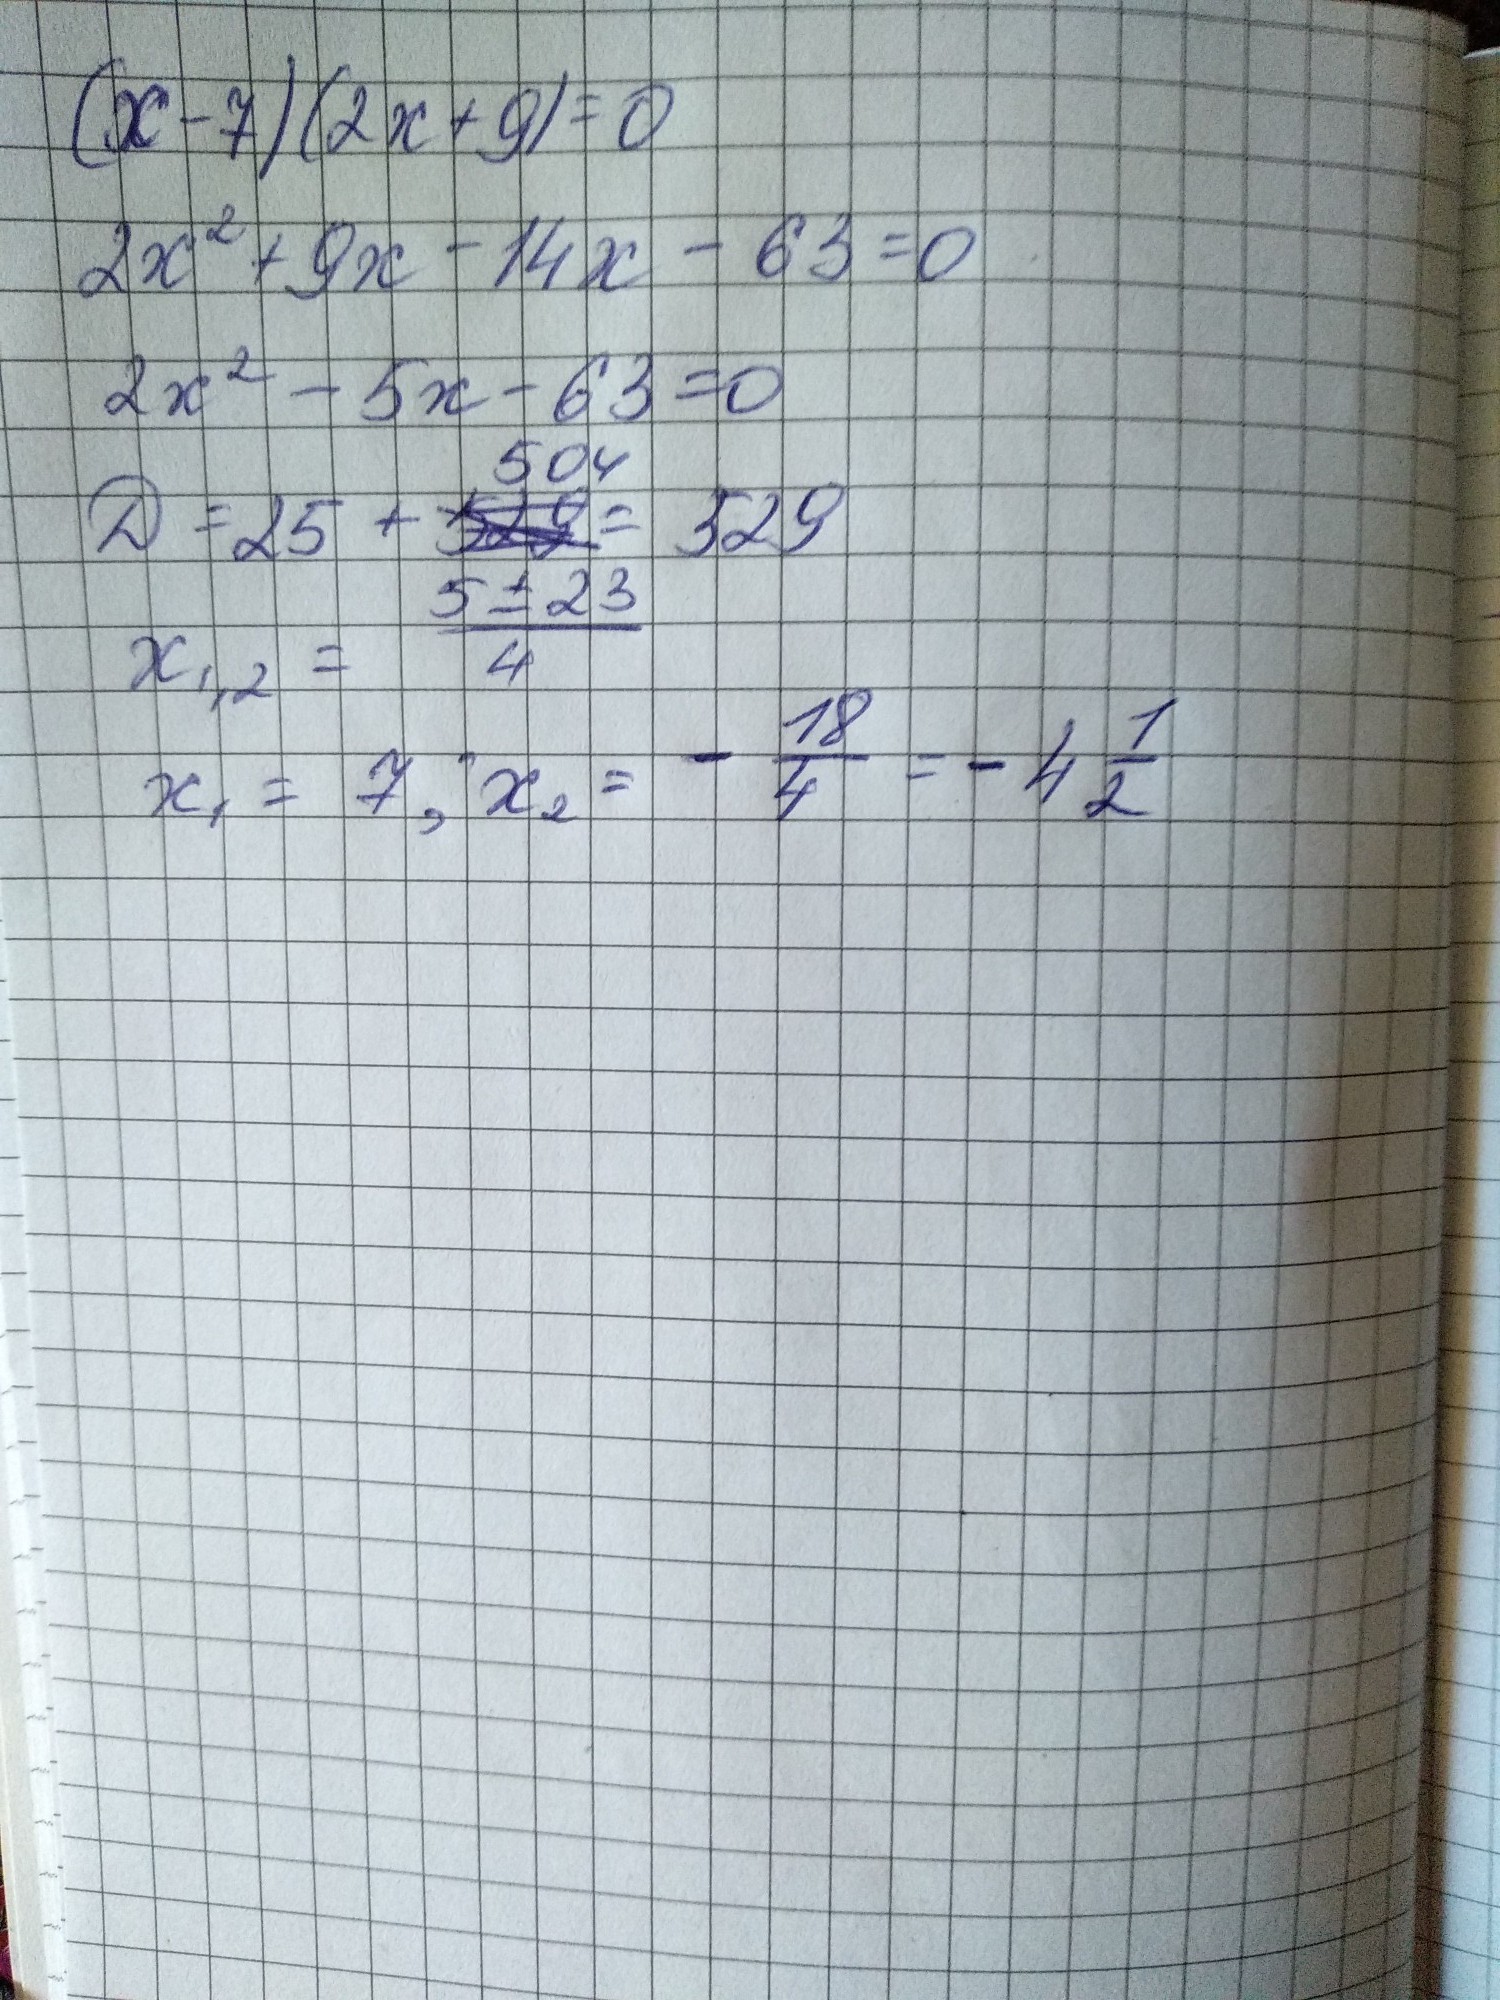 (x-7)(2x+9)=0
2x² + 9x - 14x - 63 = 0
2x² - 5x - 63 = 0
D = 25 + 504 = 529
x₁,₂ = (5 ± 23)/4
x₁ = 7, x₂ = - 18/4 = - 4 1/2